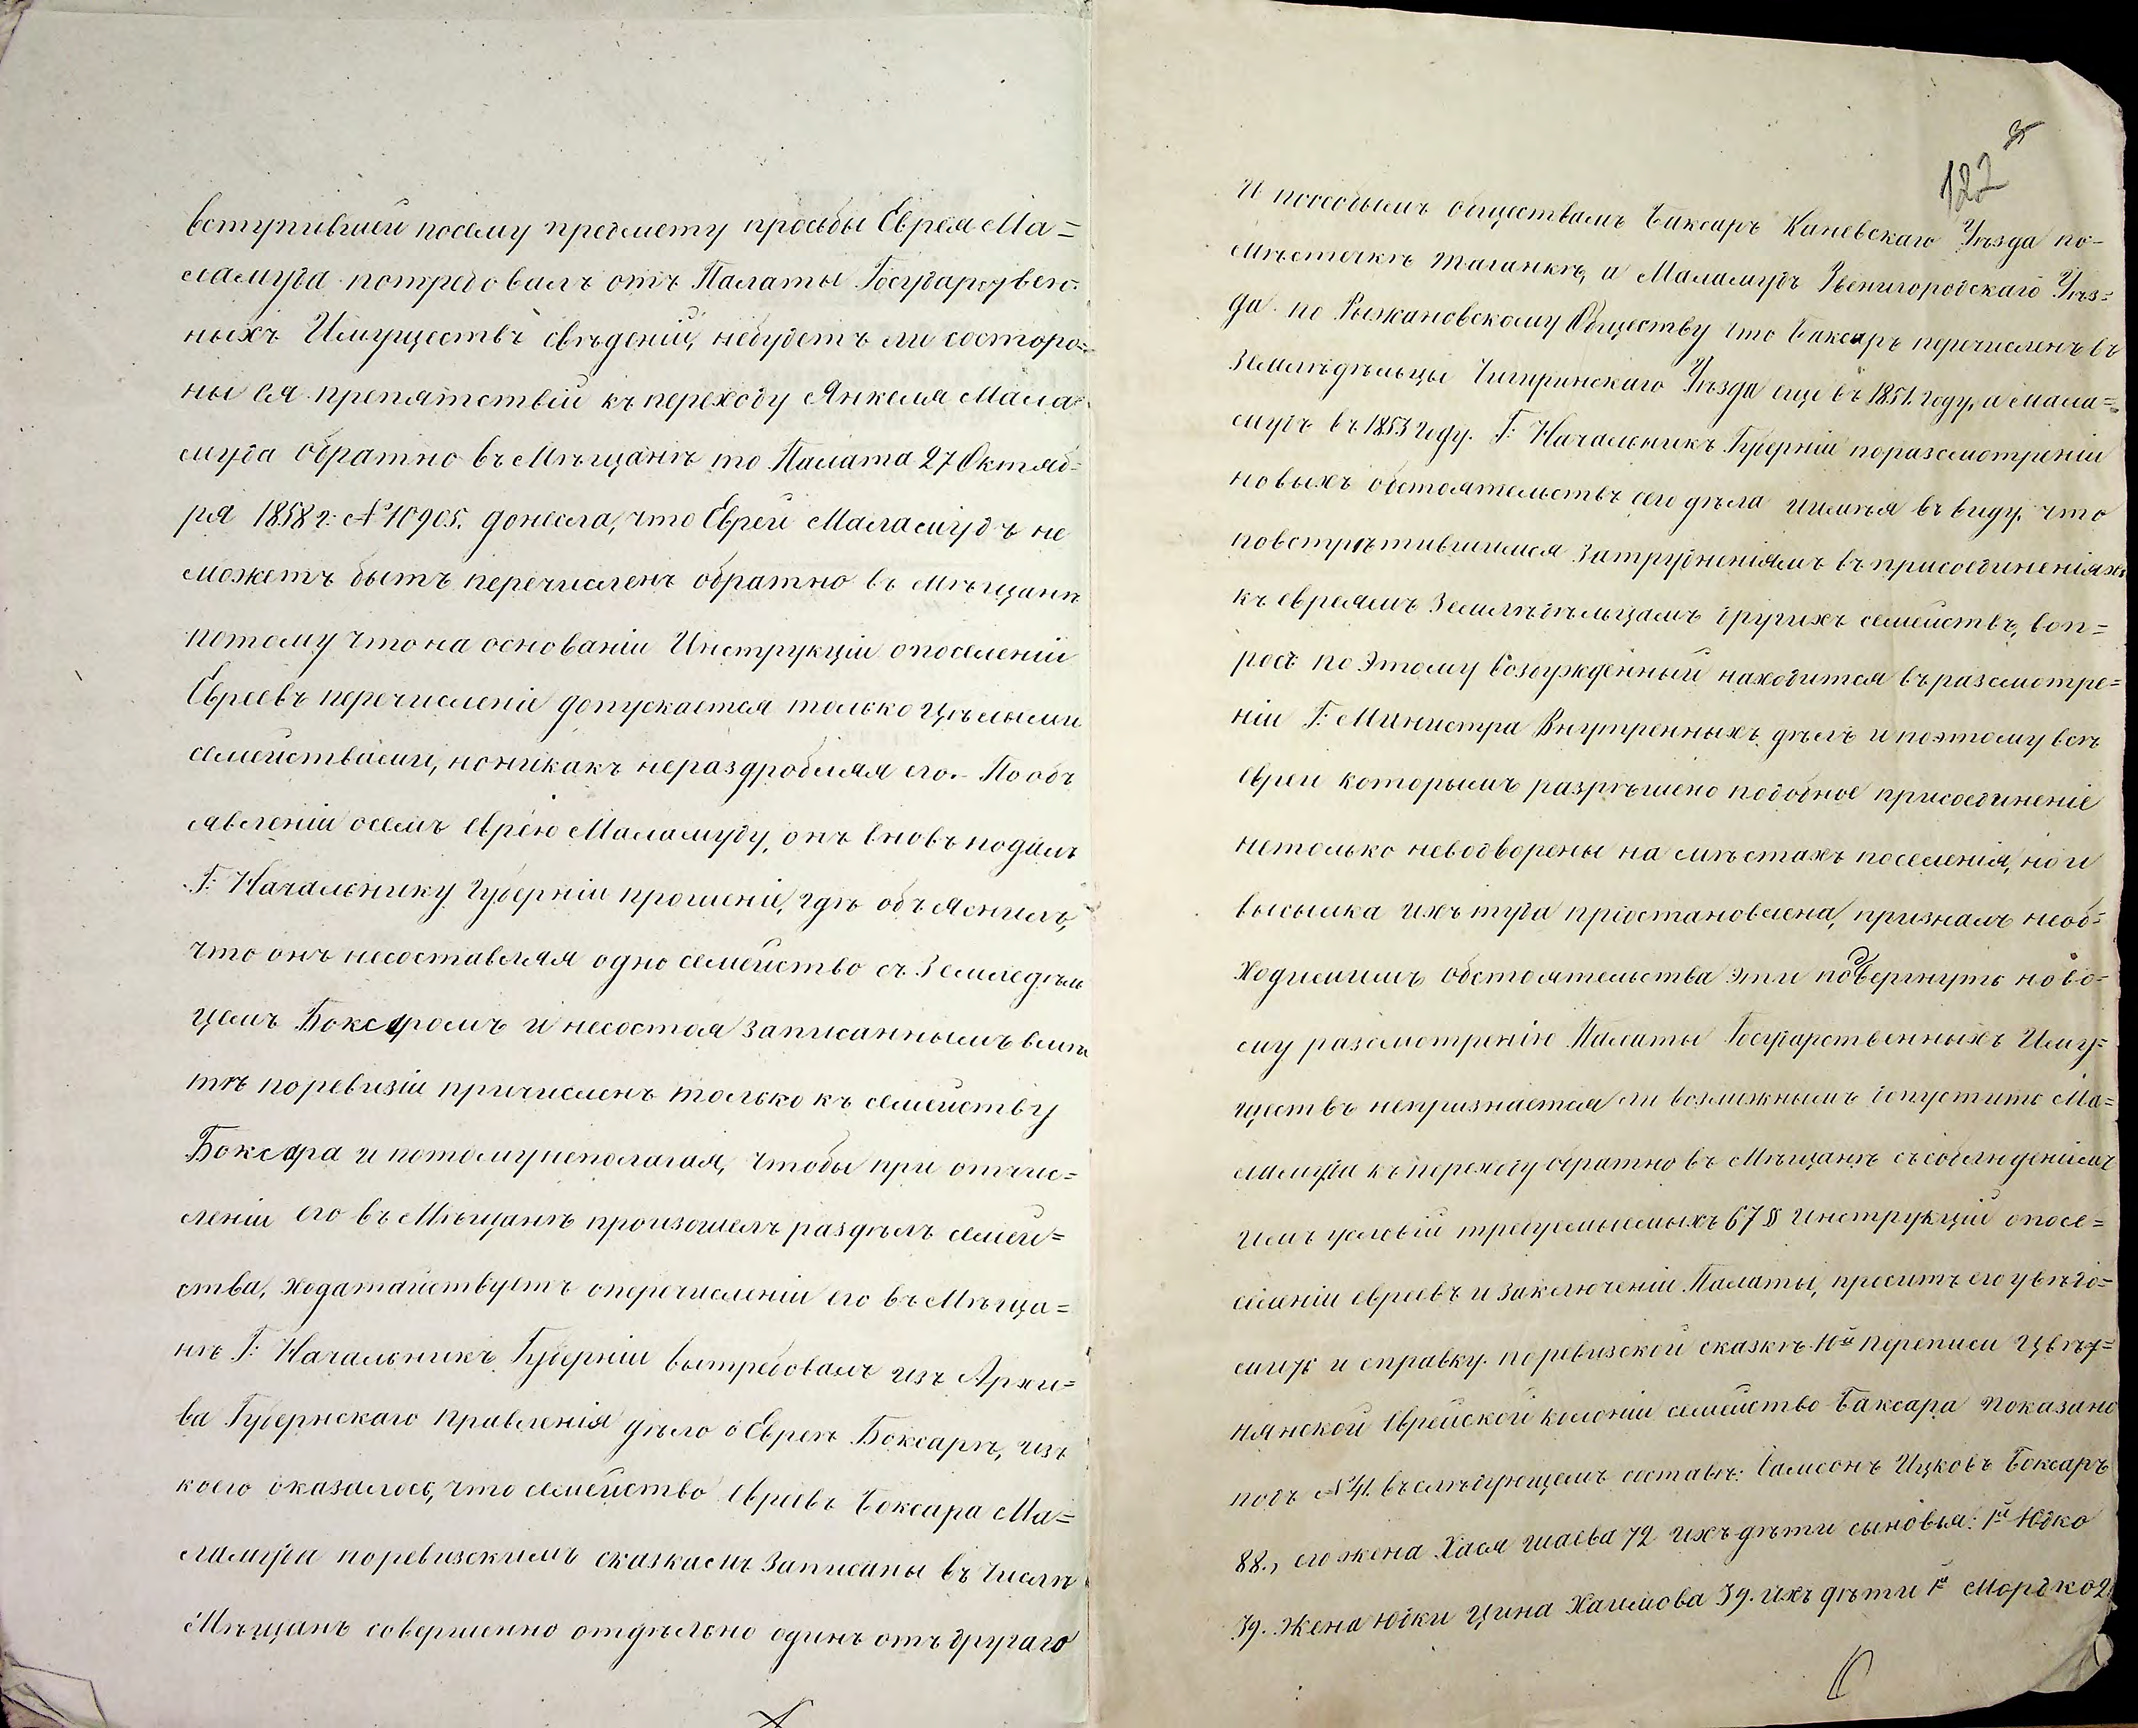 вступившей посему предмету просьбы Еврея Ма=
ламуда потребовалъ отъ Палаты Государствен=
ныхъ Имуществъ сведеній, небудетъ ли состоро=
ны ея препятствій къ переходу Янкеля Мала=
муда обратно въ Мѣщанѣ то Палата 27 Октяб=
ря 1858 г: № 10905. донесла, что Еврей Маламудъ не
можетъ быть перечисленъ обратно въ мѣщанѣ
потому что на основаніи Инструкціи опоселеніи
Евреевъ перечисленіе допускается только цѣлыми
семействами, но никакъ нераздробляя его.- По объ
явленіи осемъ Еврею Маламуду, онъ вновь подалъ
Г: Начальнику Губерніи прошеніе, гдѣ объяснилъ,
что онъ несоставляя одно семейство съ Земледѣль
цемъ Боксаромъ и несостоя записаннымъ вмѣс
тѣ поревизіи причисленъ только къ семейству
Боксара и потому неполагая, чтобы при отчис=
леніи его въ Мѣщанѣ произошелъ раздѣлъ семей=
ства, ходатайствуетъ операчисленіи его въ Мѣща=
нѣ Г: Начальникъ Губерніи вытребовалъ изъ Архи=
ва Губернскаго Правленія дѣло о Евреѣ Боксарѣ, изъ
коего оказалось, что семейство Евреевъ Боксара Ма=
ламуда поревизскимъ сказкамъ записаны въ числѣ
Мѣщанъ совершенно отдѣльно одинъ отъ другаго
122
И пособымъ обществамъ Баксаръ Каневскаго Уѣзда по=
мѣстечкѣ Таганкѣ, а Маламудъ Звенигородскаго Уѣз=
да по Рыжановскому Обществу что Баксаръ перечисленъ въ
Земледѣльцы Чигиринскаго Уѣзда еще въ 1851. году, и мала=
мудъ въ 1853 году. Г: Начальникъ Губерніи поразсмотреніи
новыхъ обстоятельствъ сего дѣла и имѣя въ виду, что
повстрѣтившимся затрудненіямъ въ присоединеніяхъ
къ евреямъ Земледѣльцамъ другихъ семействъ, воп=
росъ по этому возбужденный находится въ разсмотре=
ніи Г: Министра Внутренныхъ дѣлъ и поэтому всѣ
евреи которымъ разрѣшено подобное присоединеніе
нетолько неводворены на мѣстахъ поселенія, но и
высылка ихъ туда пріостановлена, призналъ необ=
ходимымъ обстоятельства эти подвергнуть ново=
му разсмотренію Палаты Государственныхъ Иму=
ществъ непризнается ли возможнымъ допустить Ма=
ламуда къ переходу обратно въ Мѣщанѣ съ соблюденіемъ
имъ условій требуемыхъ 67 § Инструкціи опосе=
леніи евреевъ и заключеніи Палаты, проситъ его увѣдо=
мить и справку. поревизской сказкѣ 10й переписи Цвѣт=
нянской Еврейской колоніи семейство Баксара показано
подъ № 41. въ слѣдующемъ составѣ: Самсонъ Ицковъ Боксаръ
88., его жена Хася Шаева 72 ихъ дѣти сыновья: 1й Юдко
39. жена Юдки Цина Хаимова 39. ихъ дѣти 1й Мордко 2